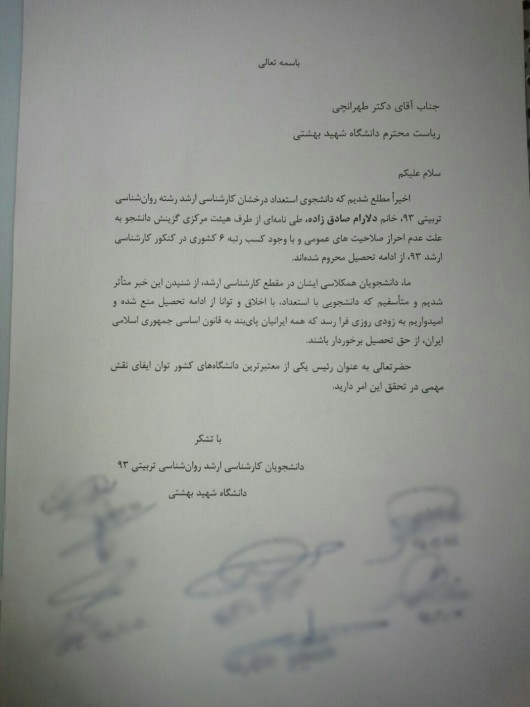 باسمه تعالی
جناب آقای دکتر طهرانچی
ریاست محترم دانشگاه شهید بهشتی
سلام علیکم
اخیراً مطلع شدیم که دانشجوی استعداد درخشان کارشناسی ارشد رشته روان‌شناسی
تربیتی ۹۳، خانم دلارام صادق زاده، طی نامه‌ای از طرف هیئت مرکزی گزینش دانشجو به
علت عدم احراز صلاحیت های عمومی و با وجود کسب رتبه ۶ کشوری در کنکور کارشناسی
ارشد ۹۳، از ادامه تحصیل محروم شده‌اند.
ما، دانشجویان همکلاسی ایشان در مقطع کارشناسی ارشد، از شنیدن این خبر متأثر
شدیم و متأسفیم که دانشجویی با استعداد، با اخلاق و توانا از ادامه تحصیل منع شده و
امیدواریم به زودی روزی فرا رسد که همه ایرانیان پای‌بند به قانون اساسی جمهوری اسلامی
ایران، از حق تحصیل برخوردار باشند.
حضرتعالی به عنوان رئیس یکی از معتبرترین دانشگاه‌های کشور توان ایفای نقش
مهمی در تحقق این امر دارید.
با تشکر
دانشجویان کارشناسی ارشد روان‌شناسی تربیتی ۹۳
دانشگاه شهید بهشتی